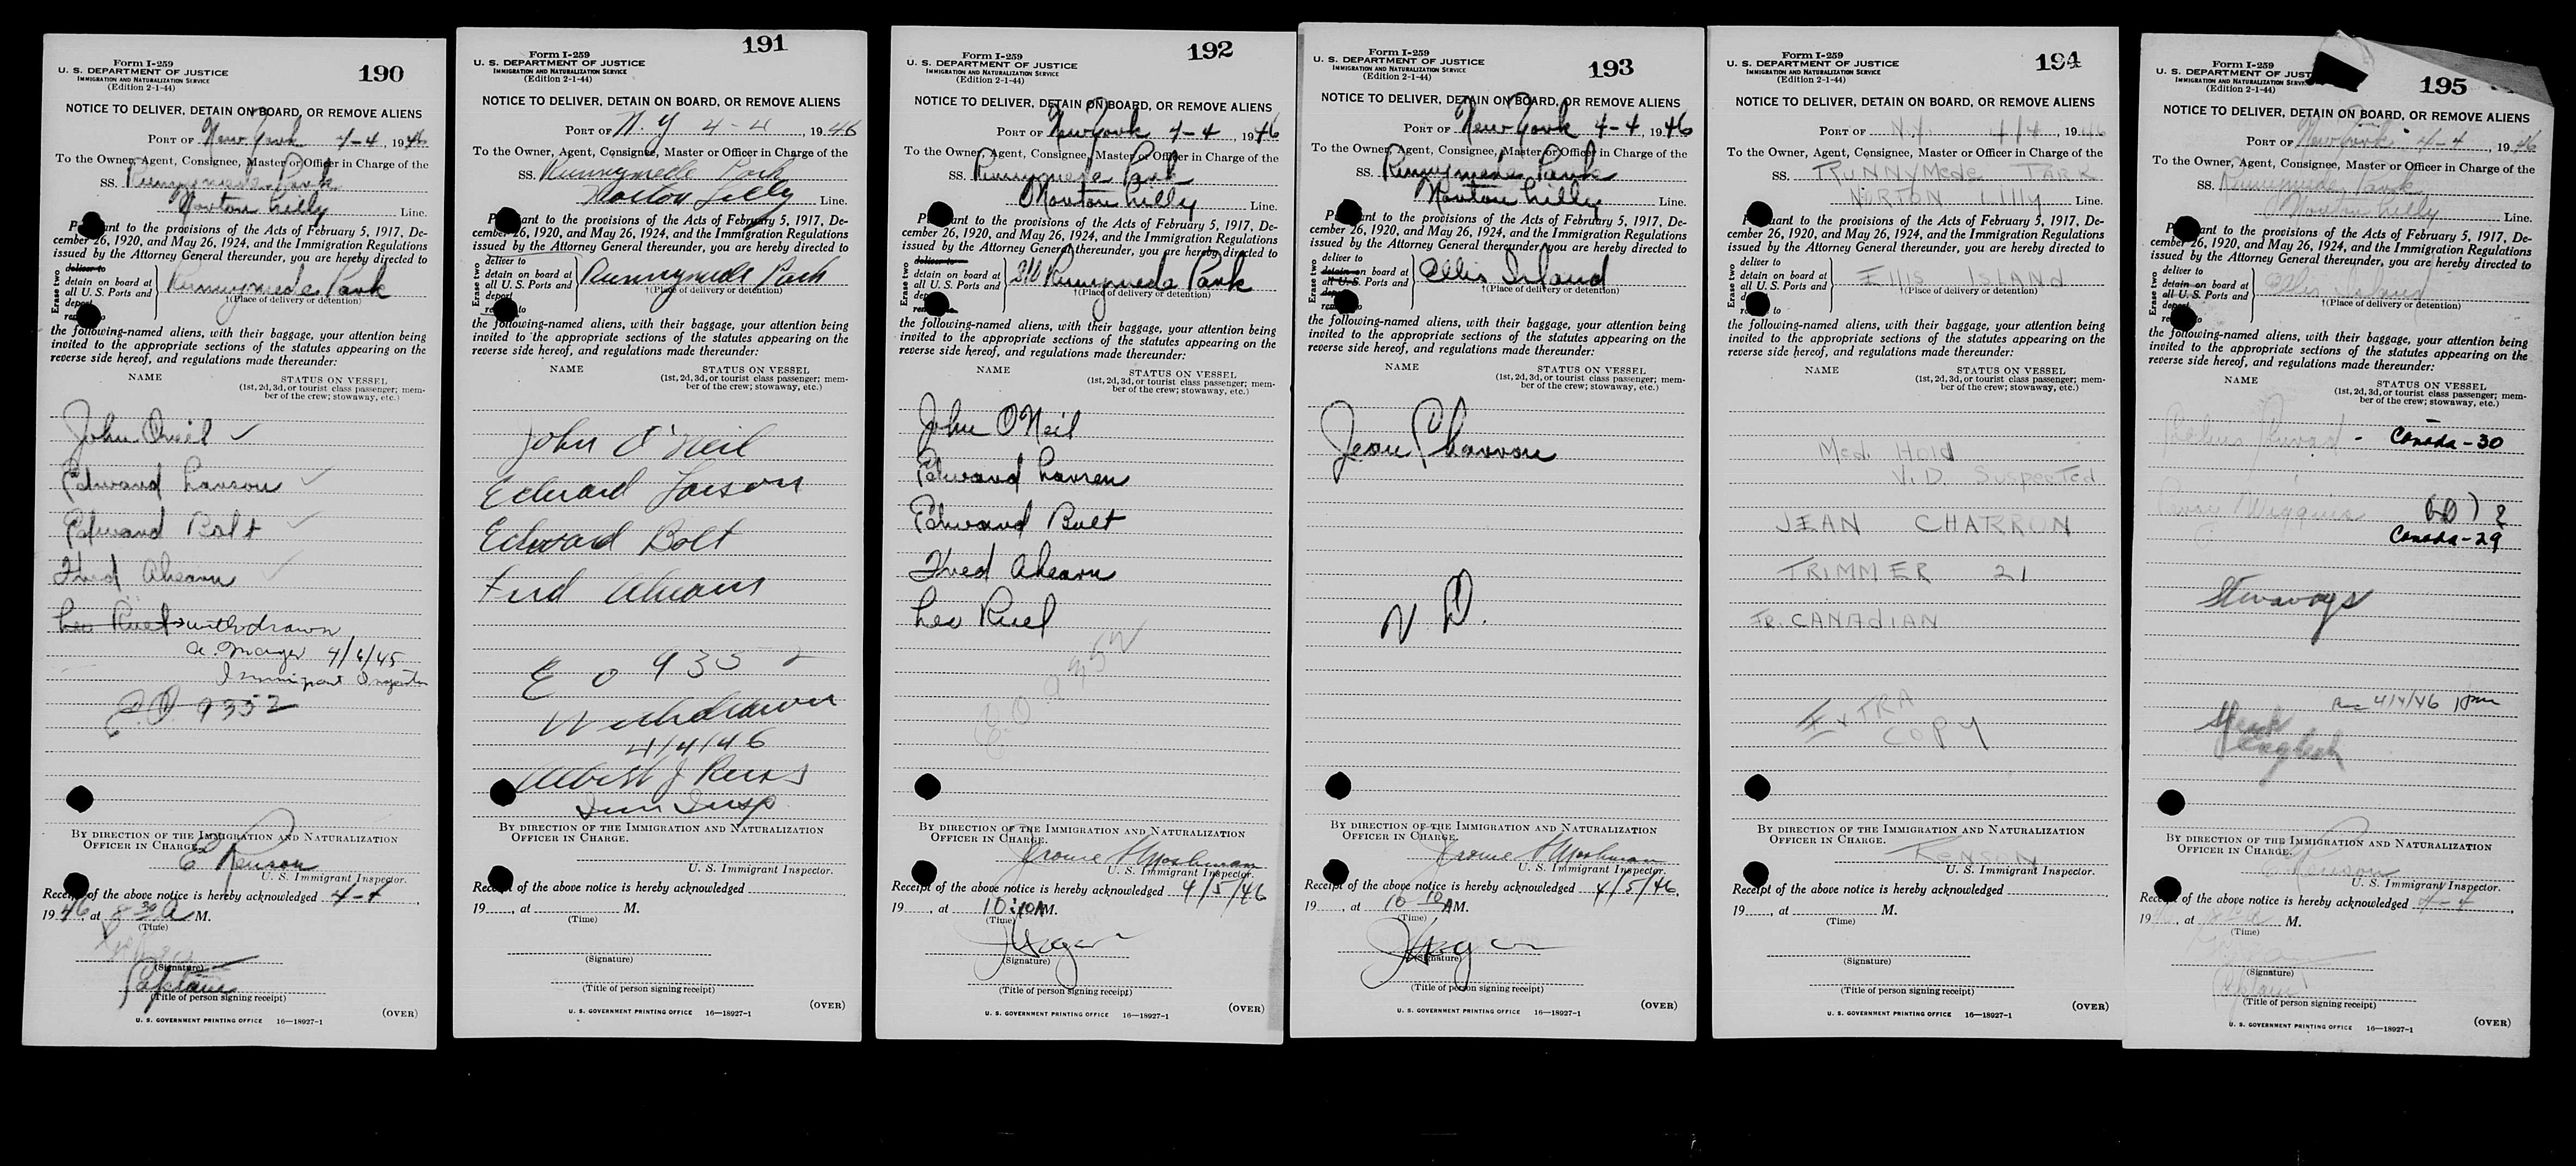 190
Form I-259
U. S. DEPARTMENT OF JUSTICE
IMMIGRATION AND NATURALIZATION SERVICE
(Edition 2-1-44)
NOTICE TO DELIVER, DETAIN ON BOARD, OR REMOVE ALIENS
PORT OF New York 4-4, 1946
To the Owner, Agent, Consignee, Master or Officer in Charge of the
SS. Runnymede Park
Norton Lilly Line.
P ant to the provisions of the Acts of February 5, 1917, De-
cember 26, 1920, and May 26, 1924, and the Immigration Regulations
issued by the Attorney General thereunder, you are hereby directed to
Erase two
deliver to
detain on board at
all U. S. Ports and
deport
re to
Runnymede Park
†(Place of delivery or detention)
the following-named aliens, with their baggage, your attention being
invited to the appropriate sections of the statutes appearing on the
reverse side hereof, and regulations made thereunder:
NAME
STATUS ON VESSEL
(1st, 2d, 3d, or tourist class passenger; mem-
ber of the crew; stowaway, etc.)
John Oneil ✓
Edward Larson ✓
Edward Bolt ✓
Fred Ahearn ✓
Leo Ruel withdrawn
4/6/45
Immigrant Inspector
E.O. 9352
BY DIRECTION OF THE IMMIGRATION AND NATURALIZATION
OFFICER IN CHARGE.
E Renson
U. S. Immigrant Inspector.
Rece of the above notice is hereby acknowledged 4-4,
1946, at 8 30 A M.
(Time)
(Signature)
Captain
(Title of person signing receipt)
(OVER)
U. S. GOVERNMENT PRINTING OFFICE 16—18927-1
191
Form I-259
U. S. DEPARTMENT OF JUSTICE
IMMIGRATION AND NATURALIZATION SERVICE
(Edition 2-1-44)
NOTICE TO DELIVER, DETAIN ON BOARD, OR REMOVE ALIENS
PORT OF N. Y 4-4, 1946
To the Owner, Agent, Consignee, Master or Officer in Charge of the
SS. Runnymede Park
Norton Lilly Line.
P ant to the provisions of the Acts of February 5, 1917, De-
cember 26, 1920, and May 26, 1924, and the Immigration Regulations
issued by the Attorney General thereunder, you are hereby directed to
Erase two
deliver to
detain on board at
all U. S. Ports and
re to
Runnymede Park
†(Place of delivery or detention)
the following-named aliens, with their baggage, your attention being
invited to the appropriate sections of the statutes appearing on the
reverse side hereof, and regulations made thereunder:
NAME
STATUS ON VESSEL
(1st, 2d, 3d, or tourist class passenger; mem-
ber of the crew; stowaway, etc.)
John O'Neil
Edward Larson
Edward Bolt
Fred
E O 9352
Withdrawn
4/4/46
Albert J
Imm Insp
BY DIRECTION OF THE IMMIGRATION AND NATURALIZATION
OFFICER IN CHARGE.
U. S. Immigrant Inspector.
Rece t of the above notice is hereby acknowledged
19 , at M.
(Time)
(Signature)
(Title of person signing receipt)
(OVER)
U. S. GOVERNMENT PRINTING OFFICE 16—18927-1
192
Form I-259
U. S. DEPARTMENT OF JUSTICE
IMMIGRATION AND NATURALIZATION SERVICE
(Edition 2-1-44)
NOTICE TO DELIVER, DETAIN ON BOARD, OR REMOVE ALIENS
PORT OF New York 4-4, 1946
To the Owner, Agent, Consignee, Master or Officer in Charge of the
SS. Runnymede Park
Norton Lilly Line.
P ant to the provisions of the Acts of February 5, 1917, De-
cember 26, 1920, and May 26, 1924, and the Immigration Regulations
issued by the Attorney General thereunder, you are hereby directed to
Erase two
deliver to
detain on board at
all U. S. Ports and
dep
Runnymede Park
†(Place of delivery or detention)
the following-named aliens, with their baggage, your attention being
invited to the appropriate sections of the statutes appearing on the
reverse side hereof, and regulations made thereunder:
NAME
STATUS ON VESSEL
(1st, 2d, 3d, or tourist class passenger; mem-
ber of the crew; stowaway, etc.)
John O'Neil
Edward Larsen
Edward Bolt
Fred Ahearn
Leo Ruel
E.O. 9352
BY DIRECTION OF THE IMMIGRATION AND NATURALIZATION
OFFICER IN CHARGE.
U. S. Immigrant Inspector.
Rece t of the above notice is hereby acknowledged 4/5/46
19 , at 10:10 AM.
(Time)
(Signature)
(Title of person signing receipt)
(OVER)
U. S. GOVERNMENT PRINTING OFFICE 16—18927-1
193
Form I-259
U. S. DEPARTMENT OF JUSTICE
IMMIGRATION AND NATURALIZATION SERVICE
(Edition 2-1-44)
NOTICE TO DELIVER, DETAIN ON BOARD, OR REMOVE ALIENS
PORT OF New York 4-4, 1946
To the Owner, Agent, Consignee, Master or Officer in Charge of the
SS. Runnymede Park
Norton Lilly Line.
P ant to the provisions of the Acts of February 5, 1917, De-
cember 26, 1920, and May 26, 1924, and the Immigration Regulations
issued by the Attorney General thereunder, you are hereby directed to
Erase two
deliver to
detain on board at
all U. S. Ports and
Ellis Island
†(Place of delivery or detention)
the following-named aliens, with their baggage, your attention being
invited to the appropriate sections of the statutes appearing on the
reverse side hereof, and regulations made thereunder:
NAME
STATUS ON VESSEL
(1st, 2d, 3d, or tourist class passenger; mem-
ber of the crew; stowaway, etc.)
Jean Charron
V. D.
BY DIRECTION OF THE IMMIGRATION AND NATURALIZATION
OFFICER IN CHARGE.
U. S. Immigrant Inspector.
Rece t of the above notice is hereby acknowledged 4/5/46,
19 , at 10 10 AM.
(Time)
(Signature)
(Title of person signing receipt)
(OVER)
U. S. GOVERNMENT PRINTING OFFICE 16—18927-1
194
Form I-259
U. S. DEPARTMENT OF JUSTICE
IMMIGRATION AND NATURALIZATION SERVICE
(Edition 2-1-44)
NOTICE TO DELIVER, DETAIN ON BOARD, OR REMOVE ALIENS
PORT OF N.Y. 4/4, 1946
To the Owner, Agent, Consignee, Master or Officer in Charge of the
SS. RUNNYMEDE PARK
NORTON LILLY Line.
uant to the provisions of the Acts of February 5, 1917, De-
cember 26, 1920, and May 26, 1924, and the Immigration Regulations
issued by the Attorney General thereunder, you are hereby directed to
Erase two
deliver to
detain on board at
all U. S. Ports and
de
re to
ELLIS ISLAND
†(Place of delivery or detention)
the following-named aliens, with their baggage, your attention being
invited to the appropriate sections of the statutes appearing on the
reverse side hereof, and regulations made thereunder:
NAME
STATUS ON VESSEL
(1st, 2d, 3d, or tourist class passenger; mem-
ber of the crew; stowaway, etc.)
Med. Hold
V.D. Suspected
JEAN CHARRON
TRIMMER 21
Fr. CANADIAN
EXTRA
COPY
BY DIRECTION OF THE IMMIGRATION AND NATURALIZATION
OFFICER IN CHARGE.
RENSON
U. S. Immigrant Inspector.
Receipt of the above notice is hereby acknowledged
19 , at M.
(Time)
(Signature)
(Title of person signing receipt)
(OVER)
U. S. GOVERNMENT PRINTING OFFICE 16—18927-1
195
Form I-259
U. S. DEPARTMENT OF JUST
IMMIGRATION AND NATURALIZATION SERV
(Edition 2-1-44)
NOTICE TO DELIVER, DETAIN ON BOARD, OR REMOVE ALIENS
PORT OF New York 4-4, 1946
To the Owner, Agent, Consignee, Master or Officer in Charge of the
SS. Runnymede Park
Norton Lilly Line.
P ant to the provisions of the Acts of February 5, 1917, De-
cember 26, 1920, and May 26, 1924, and the Immigration Regulations
issued by the Attorney General thereunder, you are hereby directed to
Erase two
deliver to
detain on board at
all U. S. Ports and
re to
Ellis Island
†(Place of delivery or detention)
the following-named aliens, with their baggage, your attention being
invited to the appropriate sections of the statutes appearing on the
reverse side hereof, and regulations made thereunder:
NAME
STATUS ON VESSEL
(1st, 2d, 3d, or tourist class passenger; mem-
ber of the crew; stowaway, etc.)
- Canada-30
Wiggins
Canada-29
Stowaways
Rec 4/4/46 1pm
English
BY DIRECTION OF THE IMMIGRATION AND NATURALIZATION
OFFICER IN CHARGE.
E Renson
U. S. Immigrant Inspector.
Rece t of the above notice is hereby acknowledged 4-4,
19 , at M.
(Time)
(Signature)
Captain
(Title of person signing receipt)
(OVER)
U. S. GOVERNMENT PRINTING OFFICE 16—18927-1